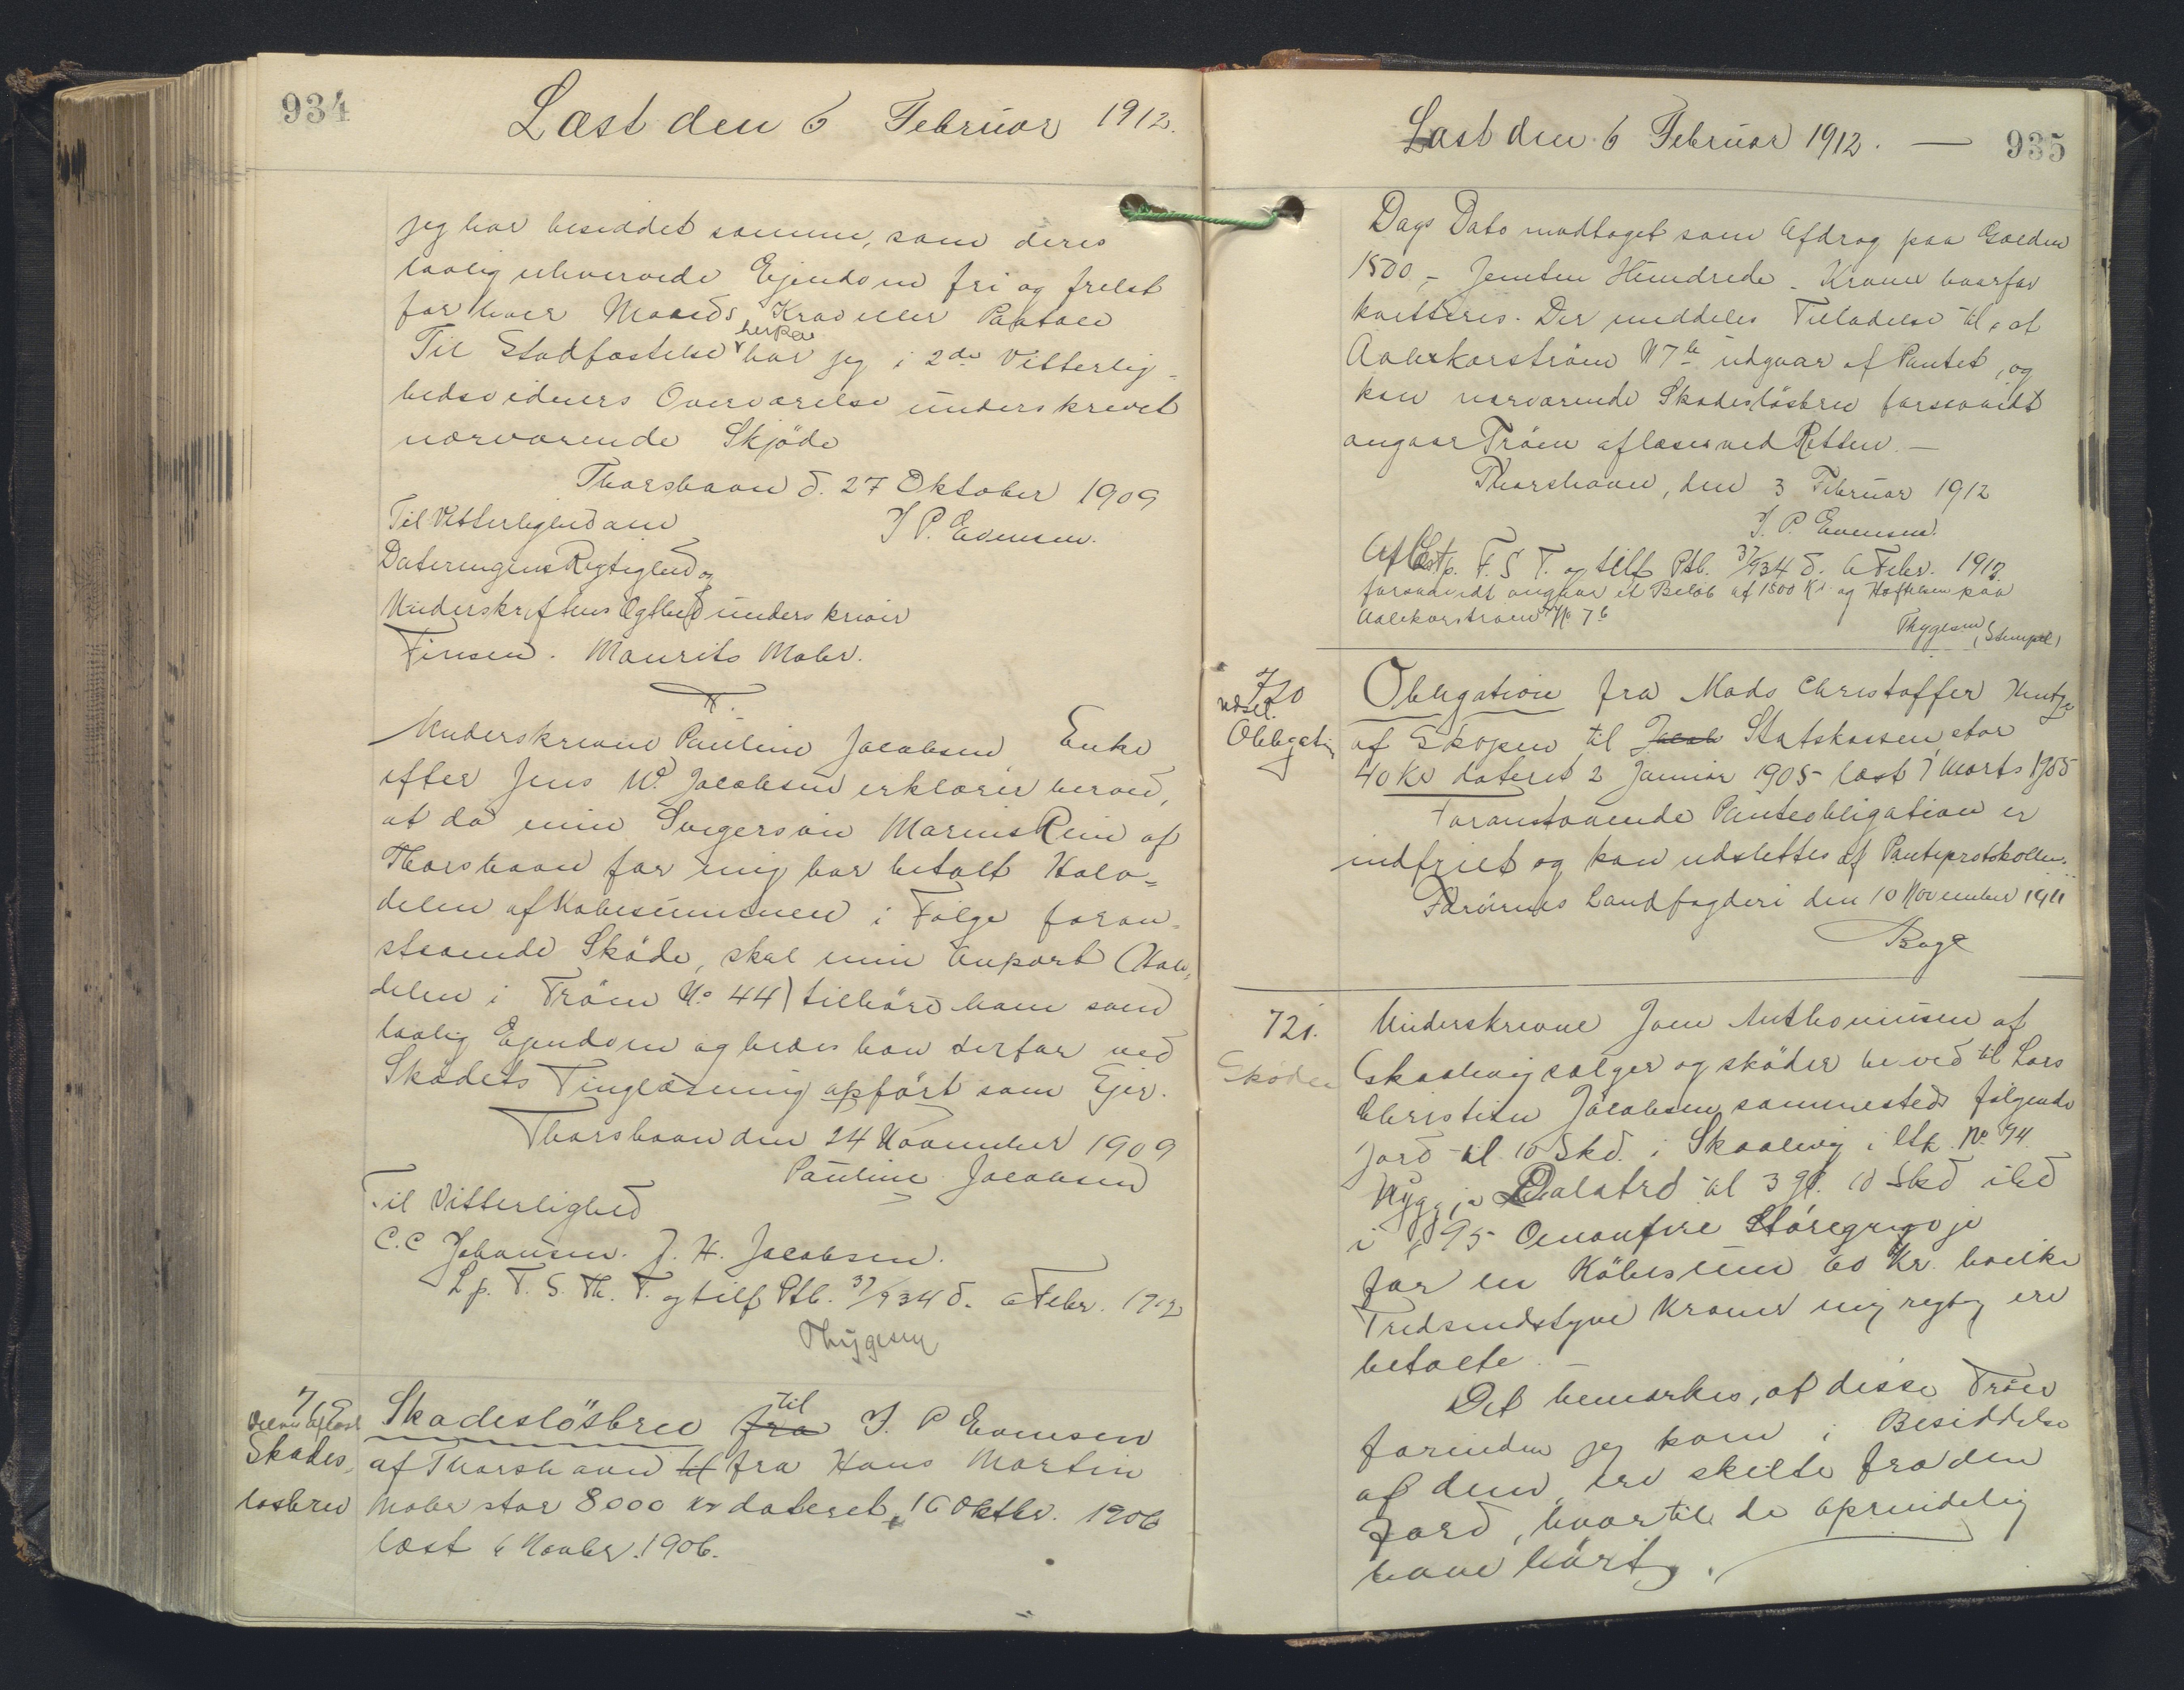 934
Læst den 6 Februar 1912.
jeg har besiddet samme, som deres
lovlig erhvervede Ejendom fri og frelst
for hver Mands Krav eller Paatale
Til Stadfæstelse herpaa har jeg i 2de Vitterlig-
hedsvidners Overværelse underskrevet
nærværende Skjöde
Thorshavn d. 27 Oktober 1909
J P. Evensen.
Til Vitterlighed om
Dateringens Rigtighed og
Underskriftens Ægthed underskriver
Finsen. Maurits Mohr.
Underskrevne Pauline Jacobsen, Enke
efter Jens W. Jacobsen erklærer herved,
at da min Svigersøn Marius Rein af
Thorshavn for mig har betalt Halv=
delen af Købesummen i Følge foran-
staaende Sköde, skal min Anpart (Halv-
delen i Tröen No 44) tilhöre ham som
lovlig Ejendom og bedes han derfor ved
Skødets Tinglæsning opfört som Ejer.
Thorshavn den 24 November 1909
Pauline Jacobsen
Til Vitterlighed
C.C Johansen. J. H. Jacobsen.
L p. T. S. Th. T. og tilf Ptb. 37/934 d. 6 Febr. 1912
Thygesen
719
Skades-
lösbrev
Skadeslösbrev fra til J. P Evensen
af Thorshavn til fra Hans Martin
Mohr stor 8000 Kr dateret 16 Oktbr. 1906
læst 6 Novbr. 1906.
Læst den 6 Februar 1912. — 935
Dags Dato modtaget som Afdrag paa Gælden
1500,- Femten Hundrede - Kroner hvorfor
kvitteres. Der meddeles Tilladelse til, at
Aalekorströen N 7b udgaar af Pantet, og
kan nærværende Skadeslösbrev forsaavidt
angaar Tröen aflæses ved Retten. —
Thorshavn, den 3 Februar 1912
J. P. Evensen.
Aflæst p. F. S T. og tilf Ptb. 37/934 d. 6 Febr. 1912
forsaavidt angaar et Beløb af 1500 Kr og Hæftelsen paa
Aalekorströen No 7b
Thygesen (Stempel)
720
udsl.
Obligation
Obligation fra Mads Christoffer Hentze
af Skopen til Jacob Statskassen stor
40 Kr dateret 2 Januar 1905 læst 7 Marts 1905
Foranstaaende Panteobligation er
indfriet og kan udslettes af Panteprotokollen.
Færöernes Landfogderi den 10 November 1911
Bogt
721.
Sköde
Underskrevne Joen Anthoniusen af
Skaalevig sælger og sköder herved til Lars
Christian Jacobsen sammesteds følgende
Jord til 10 Skd. i Skaalevig i Mk. No 94
til 3 gl. 10 Skd ibd
i 95
for en Købesum 60 Kr. hvilke
Tredsindstyve Kroner mig rigtig ere
betalte. —
Det bemærkes, at disse Tröer
forinden jeg kom i Besiddelse
af dem, ere skilte fra den
Jord, hvortil de oprindelig
have hört.